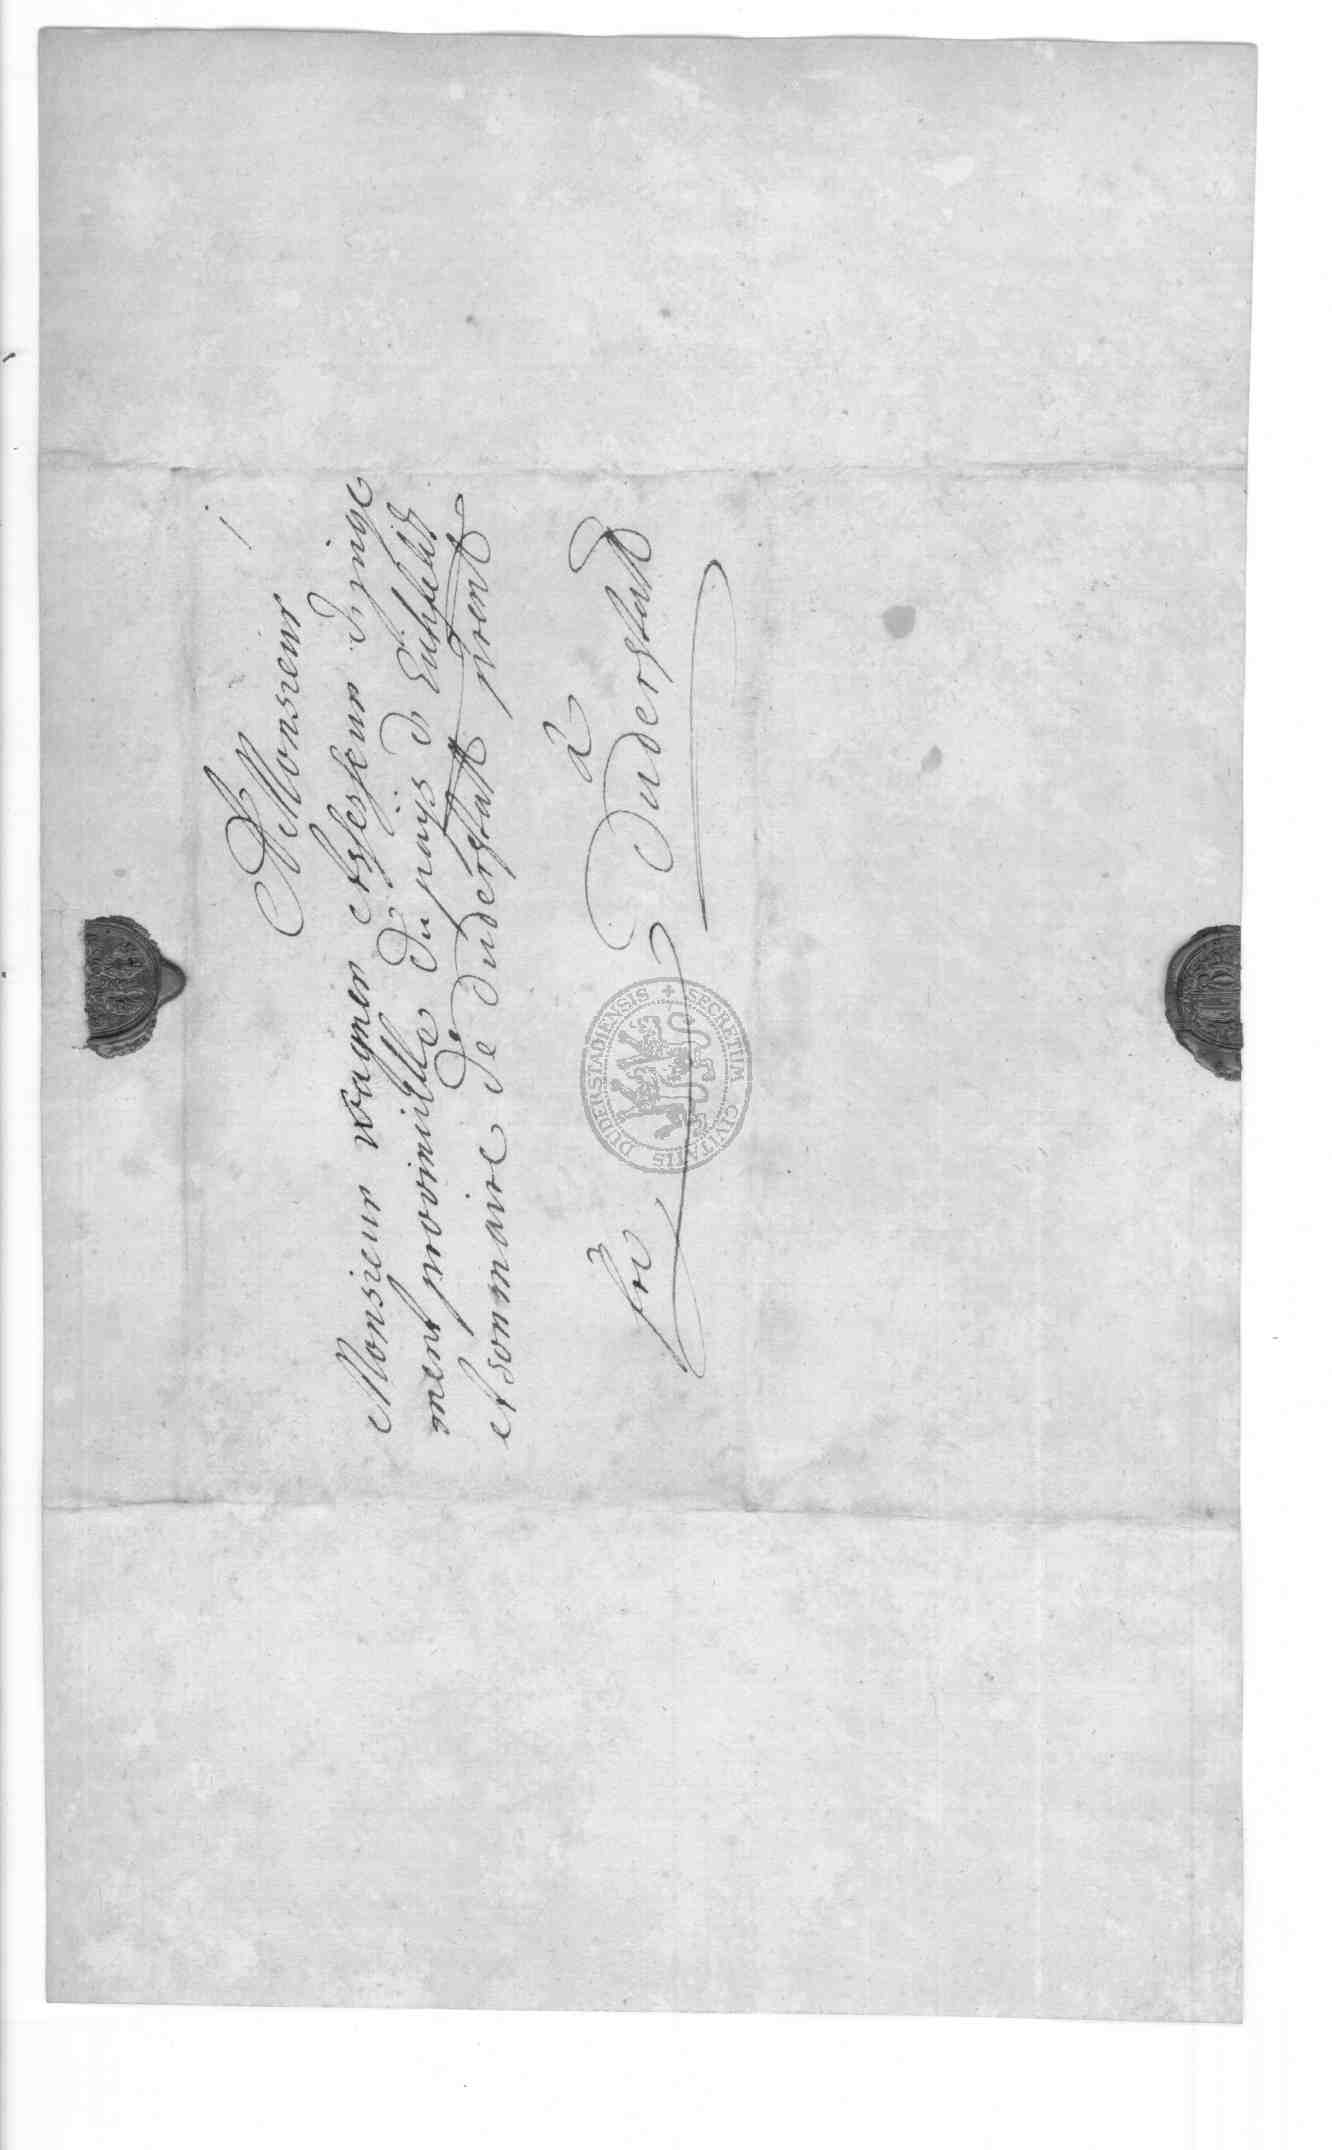 A Monsieur
Monsieur Wagner Assesseur de juge
ment provincialle du païs de Eichsfeldt
et sommaire de Duderstatt
à
frc Duderstatt
SECRETUM CIVITATIS DUDERSTADIENSIS